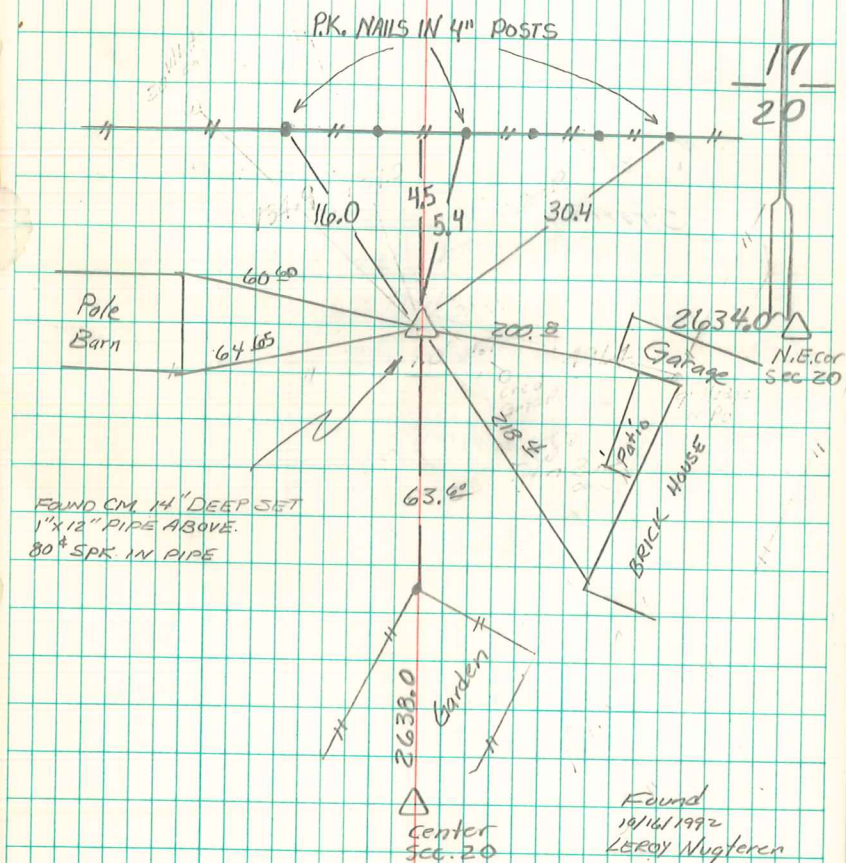 P.K. NAILS IN 4" POSTS
17
20
16.0
4.5
5.4
30.4
60 60
Pole
Barn
64 65
200.8
2634.0
Garage
N.E. cor
Sec 20
Patio
BRICK HOUSE
63.60
FOUND CM. 14" DEEP SET
1" X 12" PIPE ABOVE.
SPK. IN PIPE
Garden
2638.0
center
Sec. 20
Found
10/16/1992
LEROY Nugteren